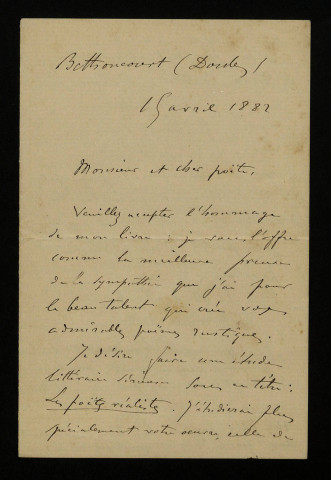 Bethoncourt (Doubs)
15 avril 1882
Monsieur et cher poète,
Veuillez accepter l'hommage
de mon livre : je vous l'offre
comme la meilleure preuve
de la sympathie que j'ai pour
le beau talent qui crée vos
admirables poèmes rustiques.
Je désire faire une étude
littéraire sous ce titre :
Les poètes réalistes. J'étudierai plus
spécialement votre œuvre, celle de